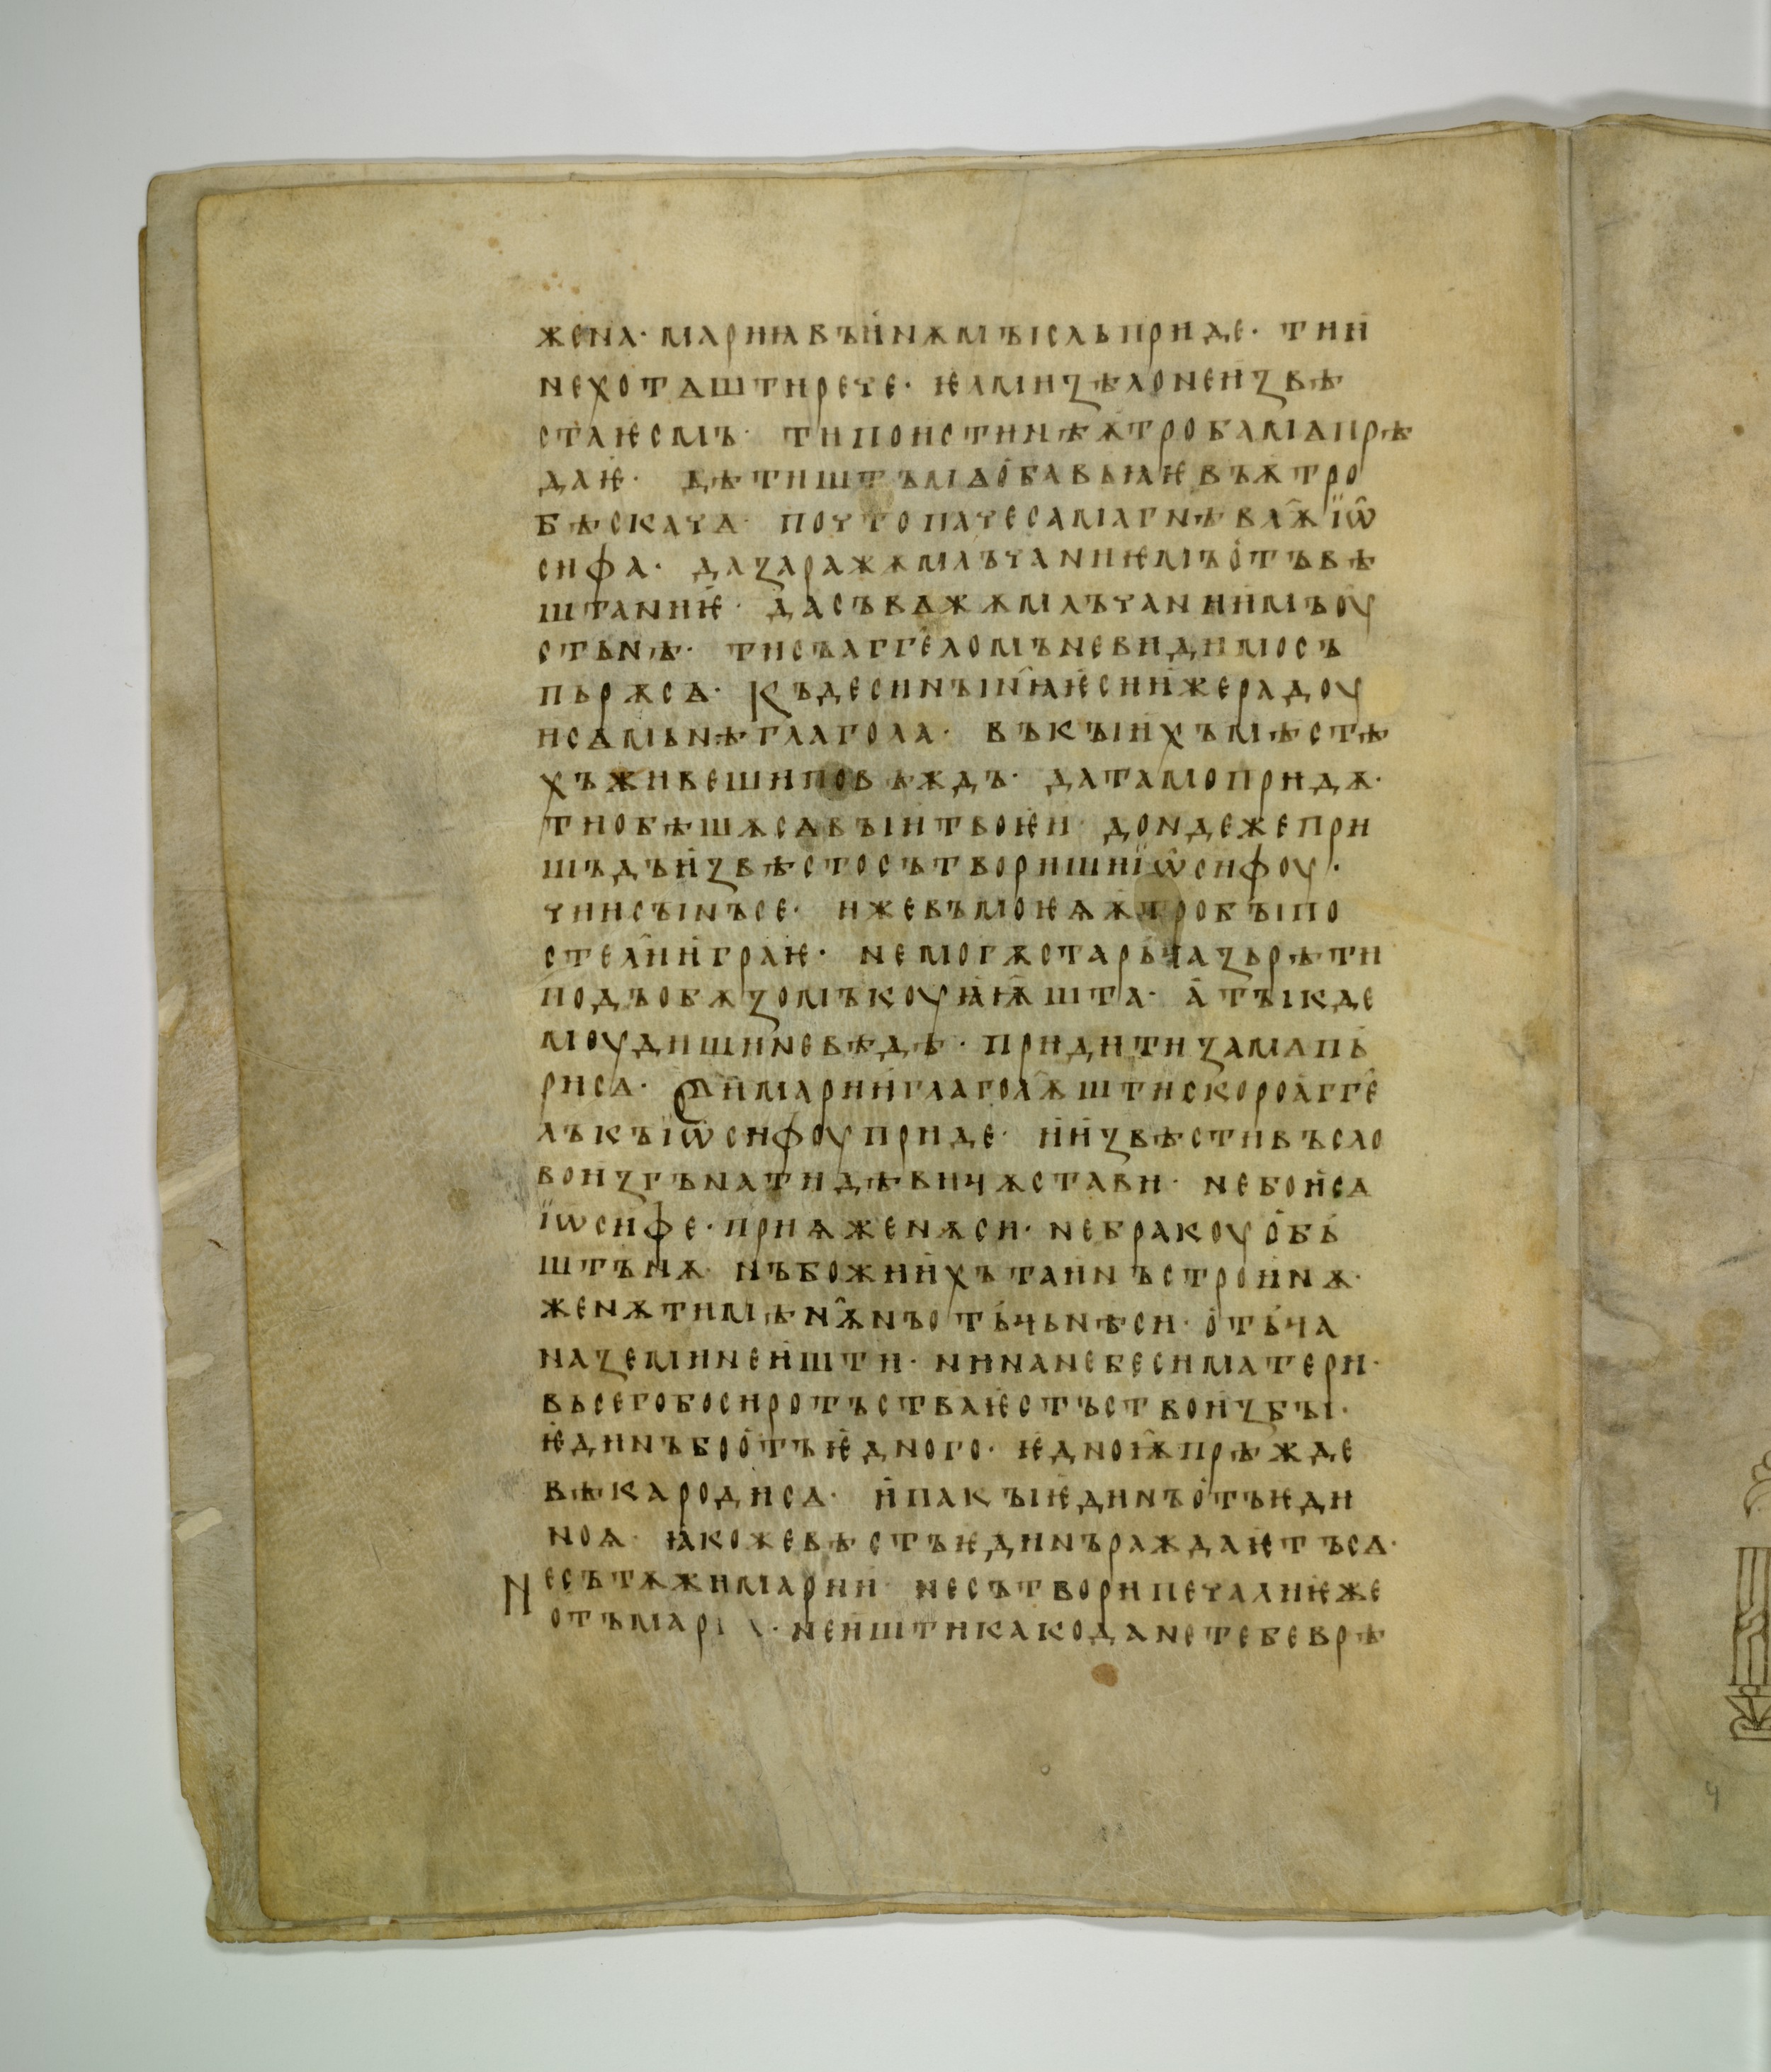 жена· мариꙗ въ и҆нѫ мꙑсль приде· ти и҆
не хотѧшти рече· ѥ҆ꙁми ꙃѣло не иꙁвѣ
стаѥсмъ· ти по истинѣ ѫтроба мѧ прѣ
даѥ· дѣтиштъ мѧ о҆бавьꙗѥ въ ѫтро
бѣ скачѧ· почто паче самѧ гнѣваѭ҄ їѡ҄
сифа· да ꙁаражѫ млъчаниѥмъ о҆тъвѣ
штаниѥ҆· да съвѧжѫ млъчании҆мъ оу
стънѣ· ти съ аггѐломъ невидимо съ
пьрѫсѧ· Къде си нꙑн҄ꙗ ѥ҆си и҆же радоу
исѧ мьнѣ глагола· въ кꙑи҆хъ мѣстѣ
хъ живеши повѣждъ· да тамо придѫ·
ти обѣшѫсѧ вꙑи твоѥи· дондеже при
шъдъ и҆ꙁвѣсто сътвориши їѡ҄сифоу·
чии сꙑнъ се· иже въ моѥѩ ѫтробꙑ по
стел҄и и҆граѥ· не могѫ старьца ꙁьрѣти
подъ обѫꙁомъ коуꙗ҆ѭ҄шта· а҆ тꙑ кде
моудиши не вѣдѣ· приди ти ꙁа мѧ пь
рисѧ· Си҄ марии҆ глагол҄ѫшти скоро а҆ггѐ
лъ къ їѡ҄сифоу приде· и҆ и҆ꙁвѣстивъ сло
во иꙁгънати дѣвицѫ стави· не бои҆сѧ
їѡсифе· приѩ женѫ си· не бракоу о҆бь
штьнѫ· нъ божии҆хъ таинъ строинѫ·
женѫ ти мѣн҄ѫ нъ отьцьнѣ си· о҆тьца
на ꙁемли не и҆шти· ни на небеси матери·
вьсего бо сиротъства ѥ҆стъство иꙁбꙑ·
ѥ҆динъ бо о҆тъ ѥ҆дного· ѥдноѭ҄ прѣжде
вѣка родисѧ· и҆ пакꙑ ѥдинъ о҆тъ ѥди
ноѩ· ꙗ҆коже вѣстъ ѥдинъ раждаѥтъсѧ·
Не сътѫжи марии· не сътвори печали ѥже
отъ мариѩ· не ишти како да не тебе врѣ